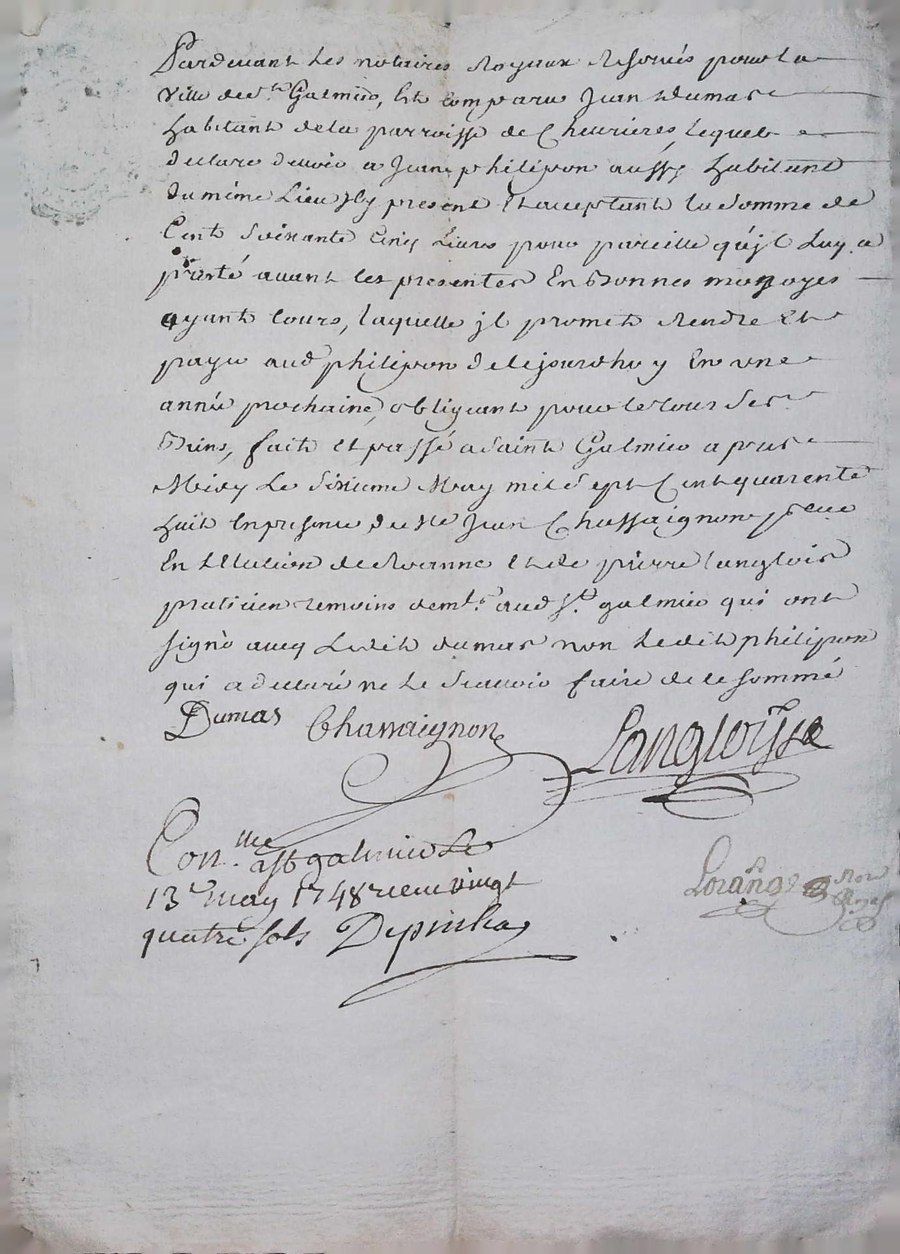 Pardevant les notaires Royaux Reservés pour la
ville de st. Galmier, Est comparu Jean Dumas
habitant de la parroisse de Chevrières, lequel
declare devoir a Jean philipon aussy habitant
du même Lieu jcy present Et acceptant la somme de
Cent soixante cinq livres pour pareille qu'jl Luy a
presté avant les presentes En bonnes monoyes
ayant cours, laquelle jl promet rendre Et
payer aud philipon de cejourdhuy En une
année prochaine, obligeant pour le tous ses
Biens, fait et passé a Saint Galmier apres
Midy Le Sixieme May mil sept Cent quarente
huit En presence de Jean Chassaignon
En Election de Roanne Et de pierre Langlois
praticien temoins demts. aud st. galmier qui ont
signé avec Ledit dumas non Ledit philipon
qui a declaré ne le scavoir faire de ce sommé
Dumas Chassaignon Langlois
Con.lle a st galmier Le
13e may 1748 receu vingt
quatre sols
Lorange Nore Royal